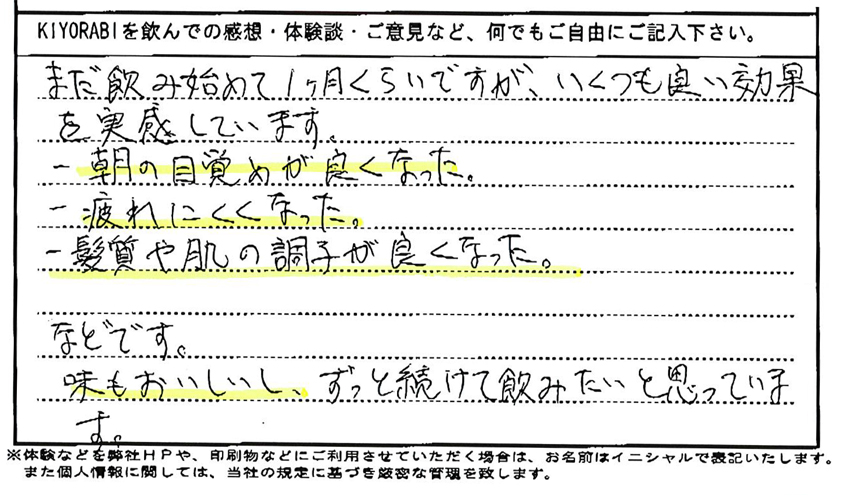 KIYORABIを飲んでの感想・体験談・ご意見など、何でもご自由にご記入下さい。
まだ飲み始めて1ヶ月くらいですが、いくつも良い効果
を実感しています。
-朝の目覚めが良くなった。
-疲れにくくなった。
-髪質や肌の調子が良くなった。
などです。
味もおいしいし、ずっと続けて飲みたいと思っていま
す。
※体験などを弊社HPや、印刷物などにご利用させていただく場合は、お名前はイニシャルで表記いたします。
また個人情報に関しては、当社の規定に基づき厳密な管理を致します。